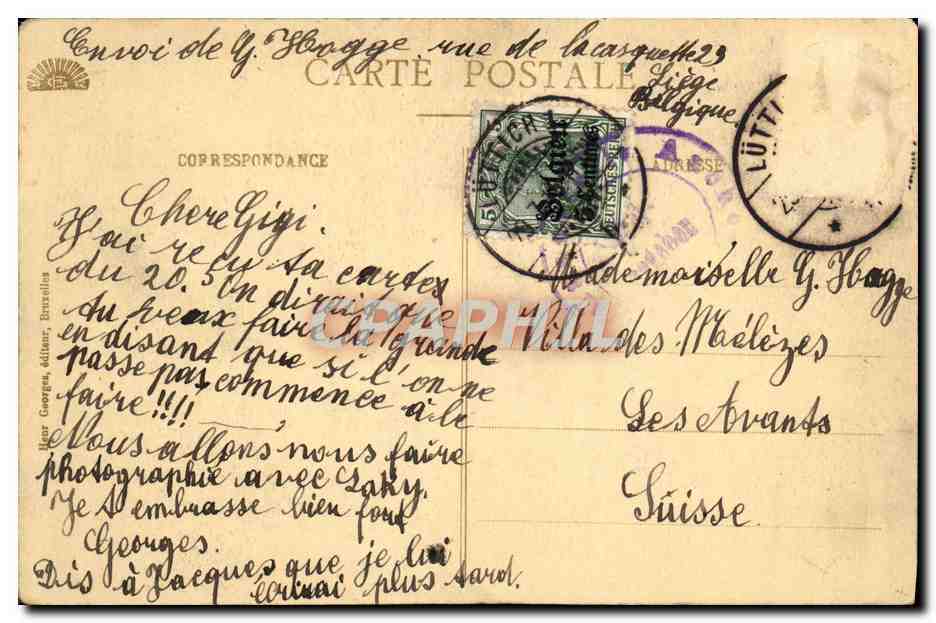 Envoi de G. Hogge rue de la casquette 23
Liège
Belgique
CARTE POSTALE
CORRESPONDANCE
ADRESSE
LÜTTICH
LÜTTI
Belgien
5 Centimes
5
5
DEUTSCHES REICH
Chere Gigi.
J'ai reçu ta cartes
du 20.5 on dirait que
tu veux faire la grande
en disant que si l'on ne
passe pas commence à le
faire!!!!
Nous allons nous faire
photographie avec
Je t embrasse bien fort
Georges.
Dis à Jacques que je lui
écrirai plus tard.
Mademoiselle G. Hogge
Villa des Mélèzes
Les Avants
Suisse.
Henr Georges, éditeur, Bruxelles
CPAPHIL